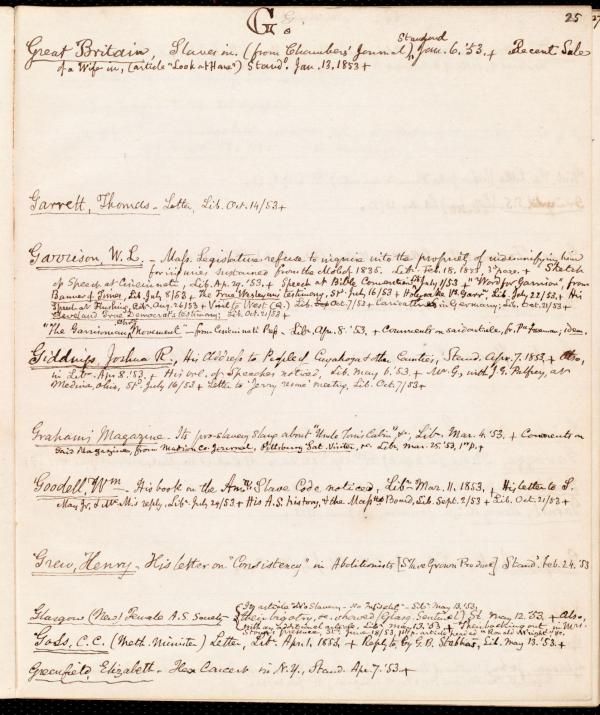 G.
25
Great Britain, Slaves in. (from Chambers' Journal), Standard Jan. 6. '53, + Recent Sale
of a Wife in, (article "Look at Home") Standd. Jan. 13, 1853 +
Garrett, Thomas - Letter, Lib. Oct. 14/53 +
Garrison, W. L. - Mass. Legislature refuse to inquire into the propriety of indemnifying him
for injuries sustained from the Mob of 1835. Libr. Feb. 18, 1853, + Sketch
of Speech at Cincinnati, Lib. Ap. 29. '53, + Speech at Bible Convention Lib. July 1/53 + "Word for Garrison", from
Banner of Times, Lib. July 8/53 + The True Wesleyan's testimony, Std. July 16/53 + Holyoake vs. Garrn., Lib. July 22/53, + His
Speech at Flushing, Aug. 26/53 + Visit to West Lib. Oct. 7/53 + in Germany; Lib. Oct. 21/53 +
Cleveland True Democrat's testimony; Lib. Oct. 21/53 +
"The Garrisonian Movement" - from Cincinnati Lib. Apr. 8. '53, + Comments on said article, fr. Pa. Freeman, idem.
Giddings, Joshua R., His Address to People of Cuyahoga &c. Counties, Stand. Apr. 7. 1853, + Also,
in Libr. Apr. 8. '53, + His vol. of Speeches noticed, Lib. May 6. '53. + Mr. G., with J. G. Palfrey, at
Medina, Ohio, Std. July 16/53 + Letter to "Jerry rescue" meeting, Lib. Oct. 7/53 +
Graham's Magazine. Its pro-slavery slang about "Uncle Tom's Cabin" &c., Libr. Mar. 4. '53, + Comments on
said Magazine, from Madison Co. Journal, Pittsburg Sat. Visiter, &c. Lib. Mar. 25. '53, 1st p. +
Goodell, Wm. - His book on the Amn. Slave Code noticed, Libr. Mar. 11. 1853, + His letter to S.
May Jr., & Mr. M's reply, Libr. July 29/53 + His A. S. history, & the Masstts. Board, Lib. Sept. 2/53 + Lib. Oct. 21/53 +
Grew, Henry - His letter on "Consistency" in Abolitionists [Slave Grown Produce] Standd. Feb. 24. '53
Glasgow (New) Female A. S. Society - Its article "No Slavery - No Infidels" - Libr. May 13. '53,
their bigotry, &c. showed (Glasg. Sentinel) St. May 12. '53, + Also,
with an additional article, Libr. May 13. '53 + Their backing out, in Mrs.
Goss, C. C. (Meth. Minister) Letter, Lib. Apr. 1. 1853, + Reply to, by G. B. Stebbins, Lib. May 13. '53. +
Greenfield, Elizabeth - Her Concert in N. Y., Stand. Apr. 7. '53 +